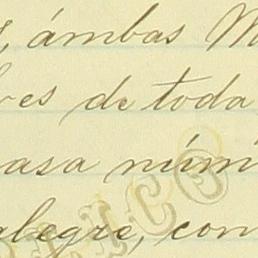 , ámbas M
res de toda
asa núm
alegre, con